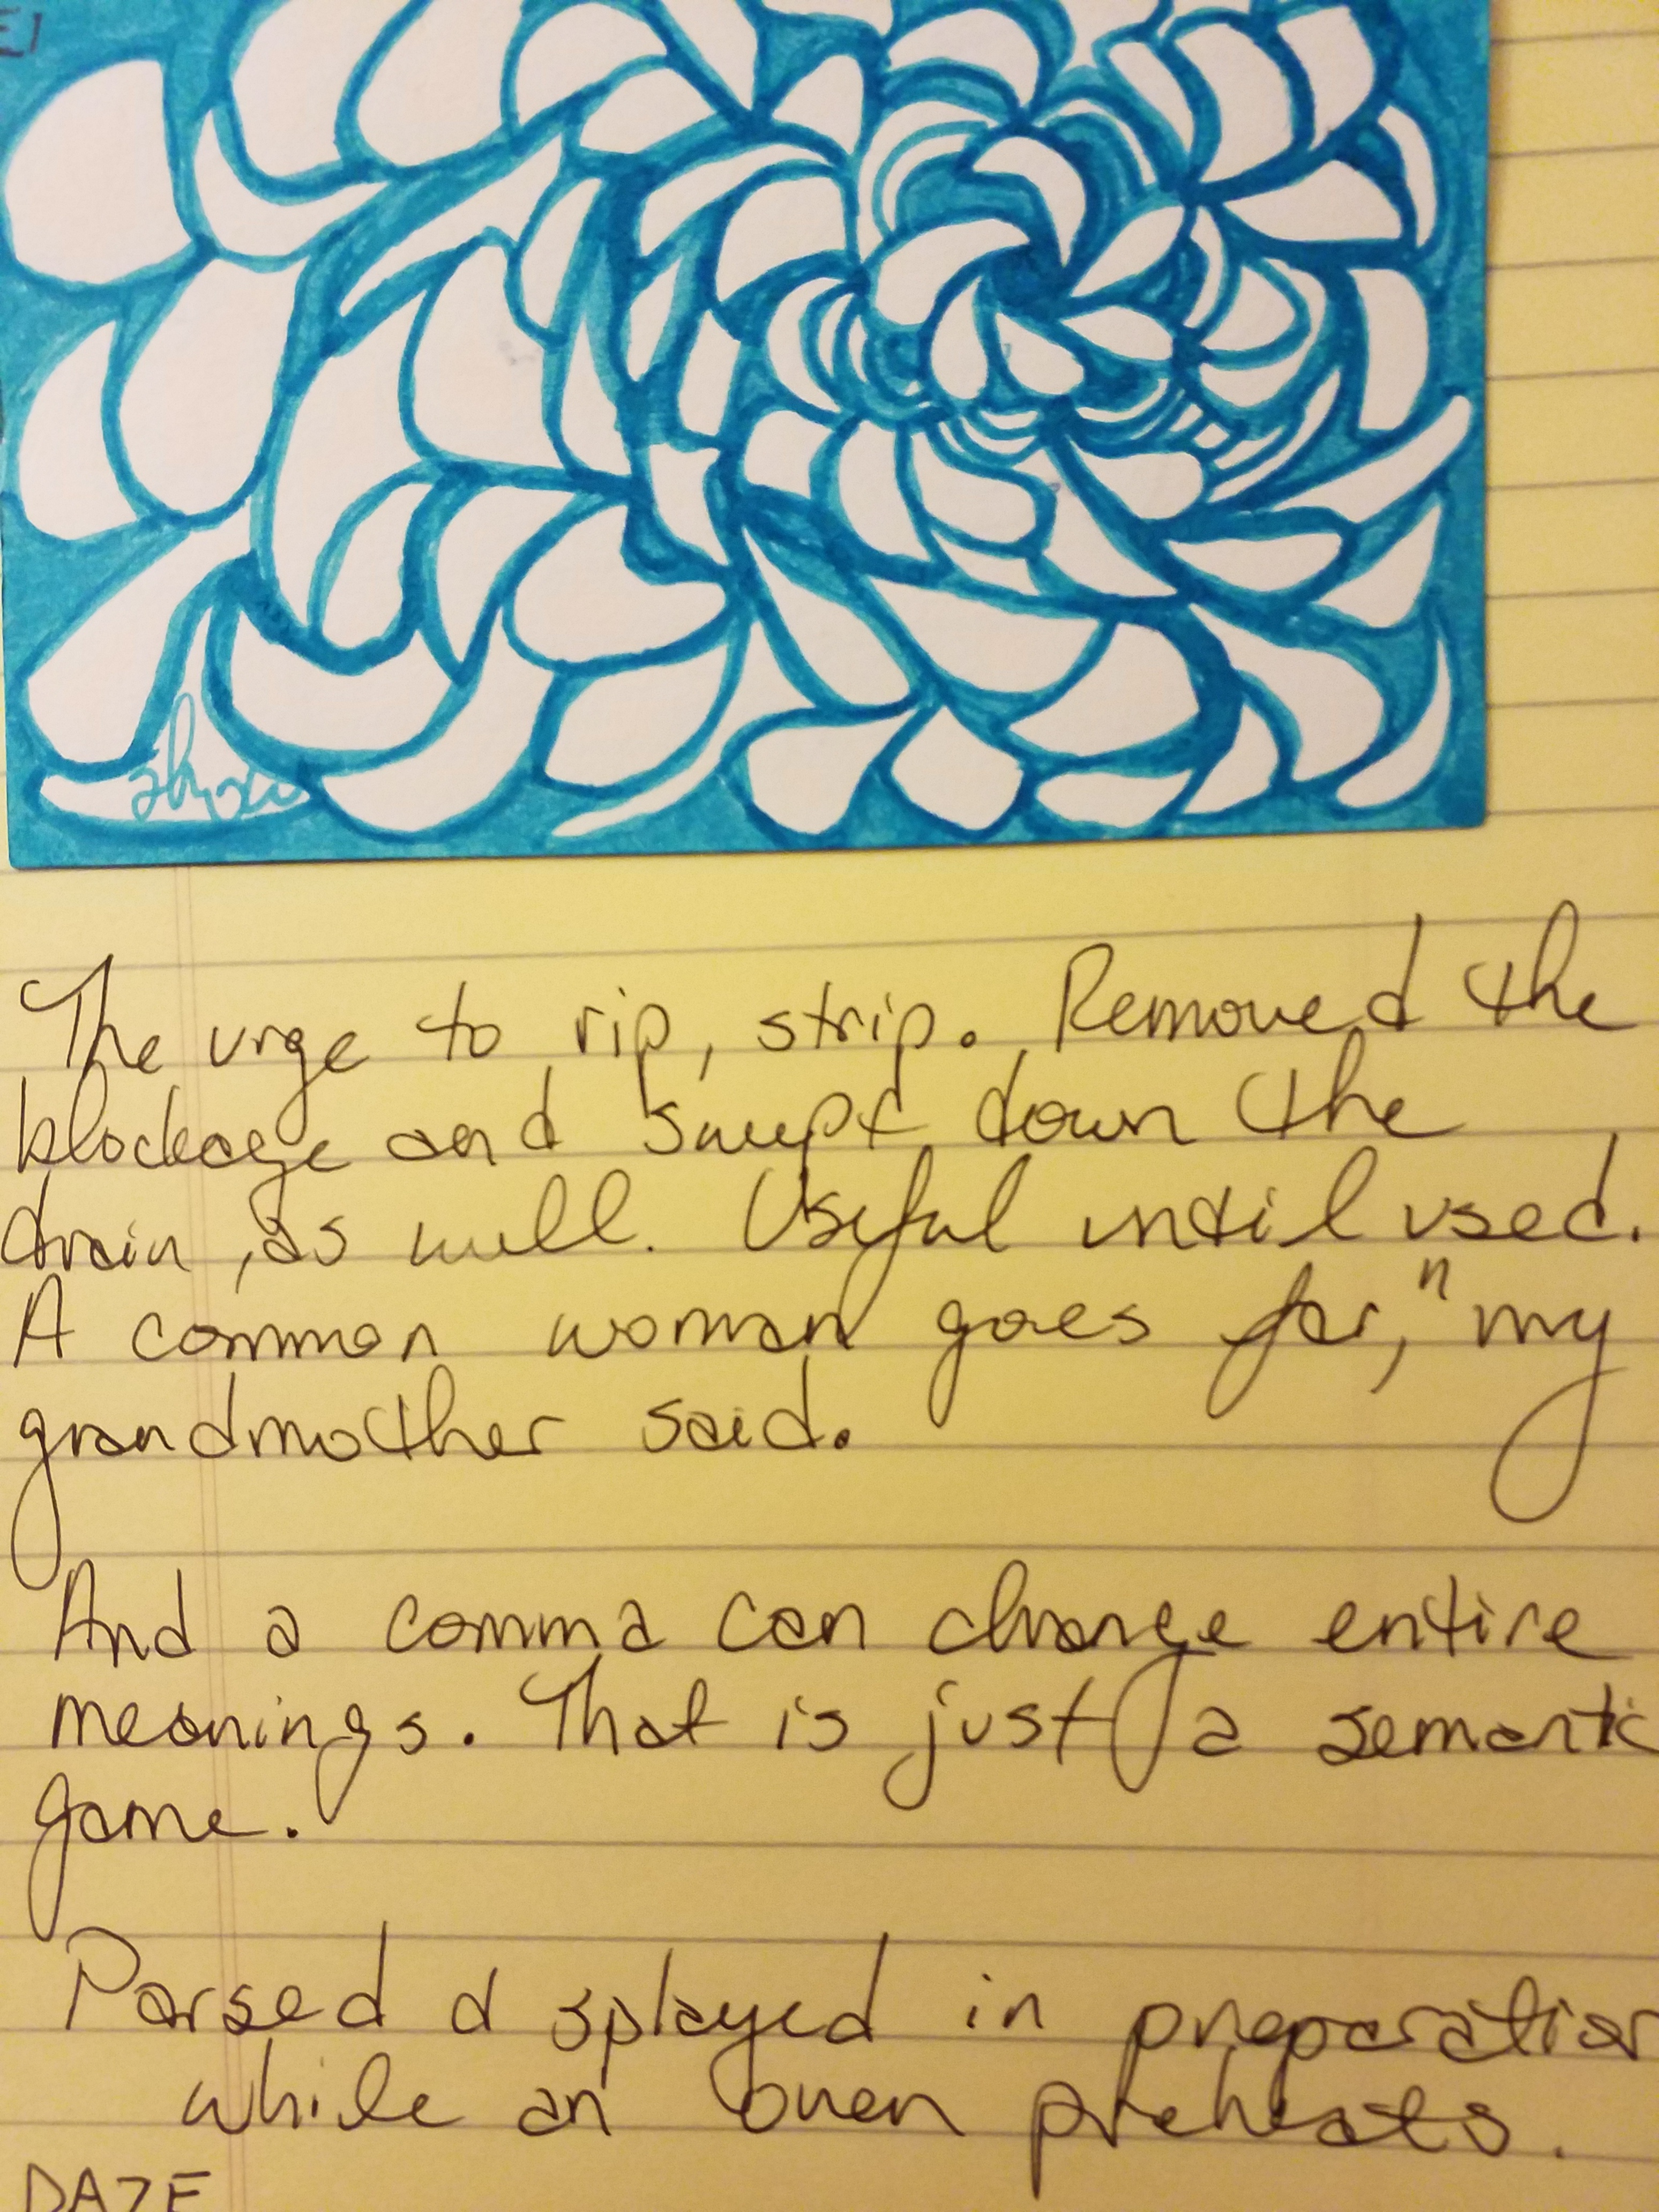 EI
The urge to rip, strip. Removed the
blockage and swept down the
drain, as well. Useful until used.
A common woman goes far," my
grandmother said.
And a comma can change entire
meanings. That is just a semantic
game.
Parsed & splayed in preparation
while an oven preheats.
DAZE